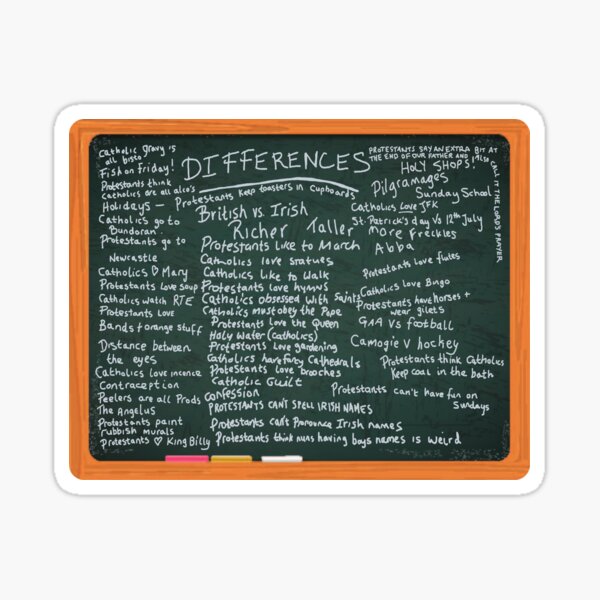 DIFFERENCES
Catholic gravy is
all bisto
Fish on Friday!
Protestants think
Catholics are all alco's
Holidays –
Catholics go to
Bundoran.
Protestants go to
Newcastle
Catholics ♡ Mary
Protestants Love Soup
Catholics watch RTE
Protestants Love
Bands + orange stuff
Distance between
the eyes
Catholics love incence
Contraception
Peelers are all Prods
The Angelus
Protestants paint
rubbish murals
Protestants ♡ King Billy
Protestants Keep toasters in Cupboards
British vs. Irish
Richer Taller
Protestants like to March
Catholics love statues
Catholics like to Walk
Protestants love hymns
Catholics obsessed with Saints
Catholics must obey the Pope
Protestants Love the Queen
Holy Water (Catholics)
Protestants Love gardening
Catholics have fancy Cathedrals
Protestants Love brooches
Catholic Guilt
Confession
PROTESTANTS CAN'T SPELL IRISH NAMES
Protestants can't Pronounce Irish names
Protestants think nuns having boys names is weird
PROTESTANTS SAY AN EXTRA BIT AT
THE END OF OUR FATHER AND ALSO
CALL IT THE LORD'S PRAYER
HOLY SHOPS!
Pilgramages
Sunday School
Catholics Love JFK
St. Patrick's day Vs 12th July
More Freckles
Abba
Protestants Love flutes
Catholics Love Bingo
Protestants have horses +
wear gilets
GAA Vs football
Camogie V hockey
Protestants think Catholics
Keep coal in the bath
Protestants can't have fun on
Sundays